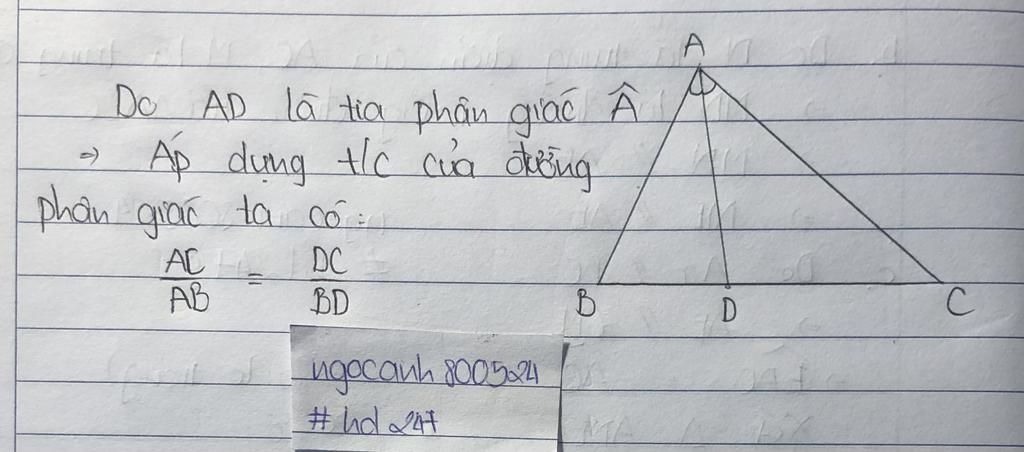 Do AD là tia phân giác Â
⇒ Áp dụng t/c của đường
phân giác ta có:
AC/AB = DC/BD
A
B
D
C
ngocanh800524
#hd247